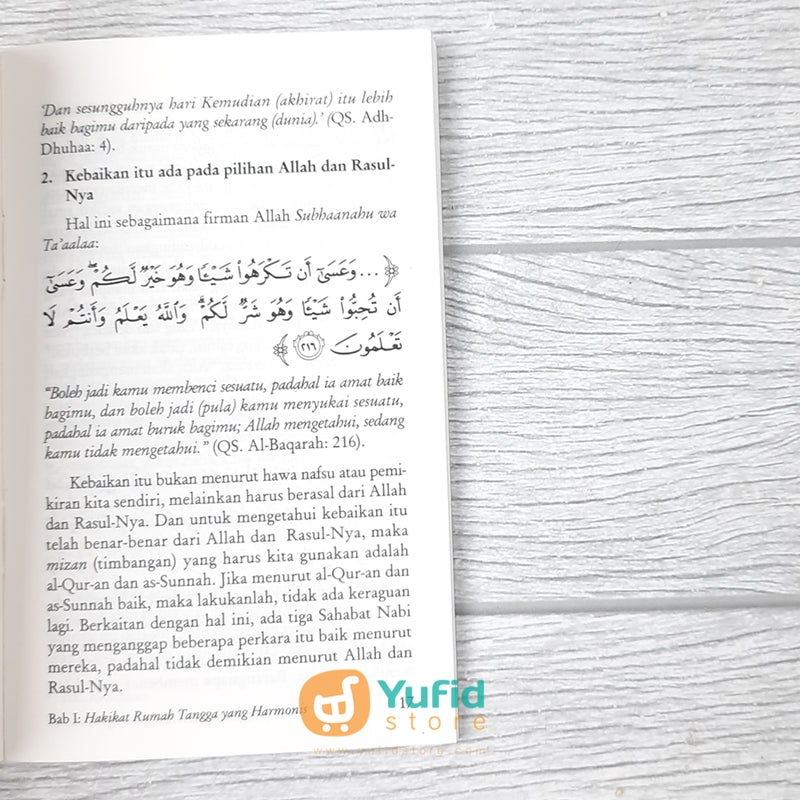 'Dan sesungguhnya hari Kemudian (akhirat) itu lebih
baik bagimu daripada yang sekarang (dunia).' (QS. Adh-
Dhuhaa: 4).
2. Kebaikan itu ada pada pilihan Allah dan Rasul-
Nya
Hal ini sebagaimana firman Allah Subhaanahu wa
Ta'aalaa:
﴿... وَعَسَىٰٓ أَن تَكْرَهُوا۟ شَيْـًٔا وَهُوَ خَيْرٌ لَّكُمْ ۖ وَعَسَىٰٓ
أَن تُحِبُّوا۟ شَيْـًٔا وَهُوَ شَرٌّ لَّكُمْ ۗ وَٱللَّهُ يَعْلَمُ وَأَنتُمْ لَا
تَعْلَمُونَ ٢١٦ ﴾
"Boleh jadi kamu membenci sesuatu, padahal ia amat baik
bagimu, dan boleh jadi (pula) kamu menyukai sesuatu,
padahal ia amat buruk bagimu; Allah mengetahui, sedang
kamu tidak mengetahui." (QS. Al-Baqarah: 216).
Kebaikan itu bukan menurut hawa nafsu atau pemi-
kiran kita sendiri, melainkan harus berasal dari Allah
dan Rasul-Nya. Dan untuk mengetahui kebaikan itu
telah benar-benar dari Allah dan Rasul-Nya, maka
mizan (timbangan) yang harus kita gunakan adalah
al-Qur-an dan as-Sunnah. Jika menurut al-Qur-an dan
as-Sunnah baik, maka lakukanlah, tidak ada keraguan
lagi. Berkaitan dengan hal ini, ada tiga Sahabat Nabi
yang menganggap beberapa perkara itu baik menurut
mereka, padahal tidak demikian menurut Allah dan
Rasul-Nya.
Bab I: Hakikat Rumah Tangga yang Harmonis 17
Yufid
store
www.yufidstore.com